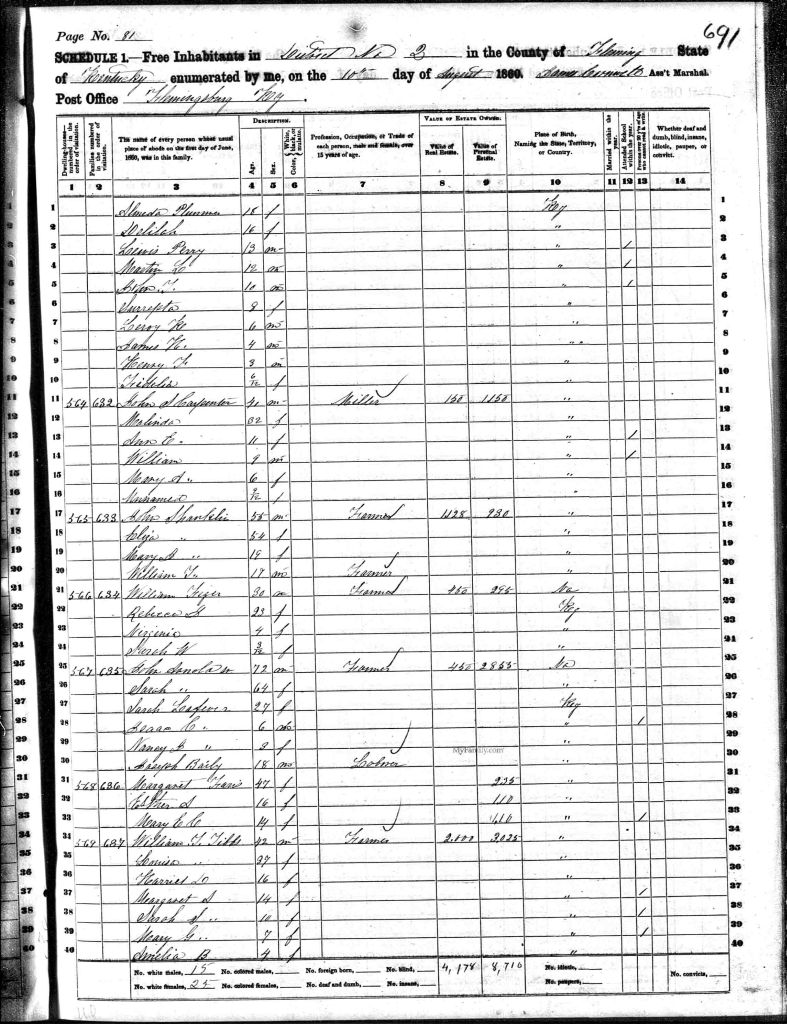 Page No. 81
691
SCHEDULE 1.—Free Inhabitants in District No 2 in the County of Fleming State
of Kentucky enumerated by me, on the 10th day of August 1860. Ass't Marshal.
Post Office Flemingsburg Ky
Dwelling-houses—numbered in the order of visitation.
Families numbered in the order of visitation.
The name of every person whose usual place of abode on the first day of June, 1860, was in this family.
DESCRIPTION.
Age.
Sex.
Color, White, black, or mulatto.
Profession, Occupation, or Trade of each person, male and female, over 15 years of age.
VALUE OF ESTATE OWNED.
Value of Real Estate.
Value of Personal Estate.
Place of Birth, Naming the State, Territory, or Country.
Married within the year.
Attended School within the year.
Persons over 20 y'rs of age who cannot read & write.
Whether deaf and dumb, blind, insane, idiotic, pauper, or convict.
1 2 3 4 5 6 7 8 9 10 11 12 13 14
1 Almeda Plummer 18 f Ky 1
2 Delilah 16 f " 2
3 Lewis Perry 13 m " / 3
4 Martin L 12 m " / 4
5 John T. 10 m " / 5
6 8 f " 6
7 Leroy 6 m " 7
8 James H. 4 m " 8
9 Henry F 3 m " 9
10 6/12 f " 10
11 564 632 John S Carpenter 41 m Miller 150 1150 " 11
12 Malinda 32 f " 12
13 Ann E. 11 f " / 13
14 William 9 m " / 14
15 Mary A " 6 f " 15
16 Unnamed f " 16
17 565 633 John Shanklin 55 m Farmer 1128 930 " 17
18 Eliza " 54 f " 18
19 Mary A " 19 f " 19
20 William T. 17 m Farmer " 20
21 566 634 William 30 m Farmer 450 295 Va 21
22 Rebecca 23 f Ky 22
23 Virginia 4 f " 23
24 Sarah W f " 24
25 567 635 John 72 m Farmer 450 2855 Va 25
26 Sarah " 64 f " 26
27 Sarah Lafever 27 f Ky 27
28 Isaac C. 6 m " / 28
29 Nancy A " 2 f " 29
30 Joseph Baily 18 m " 30
31 568 636 Margaret 47 f 235 " 31
32 Esther 16 f 110 " 32
33 Mary E C 14 f 110 " / 33
34 569 637 William T. Tibbs 42 m Farmer 2.000 3.025 " 34
35 Louisa " 37 f " 35
36 Harriet 16 f " 36
37 Margaret S 14 f " / 37
38 Sarah " 10 f " / 38
39 Mary G " 7 f " / 39
40 Amelia B 4 f " 40
MyFamily.com
No. white males, 15 No. colored males, No. foreign born, No. blind, 4,178 8,710 No. idiotic, No. convicts,
No. white females, 25 No. colored females, No. deaf and dumb, No. insane, No. paupers,